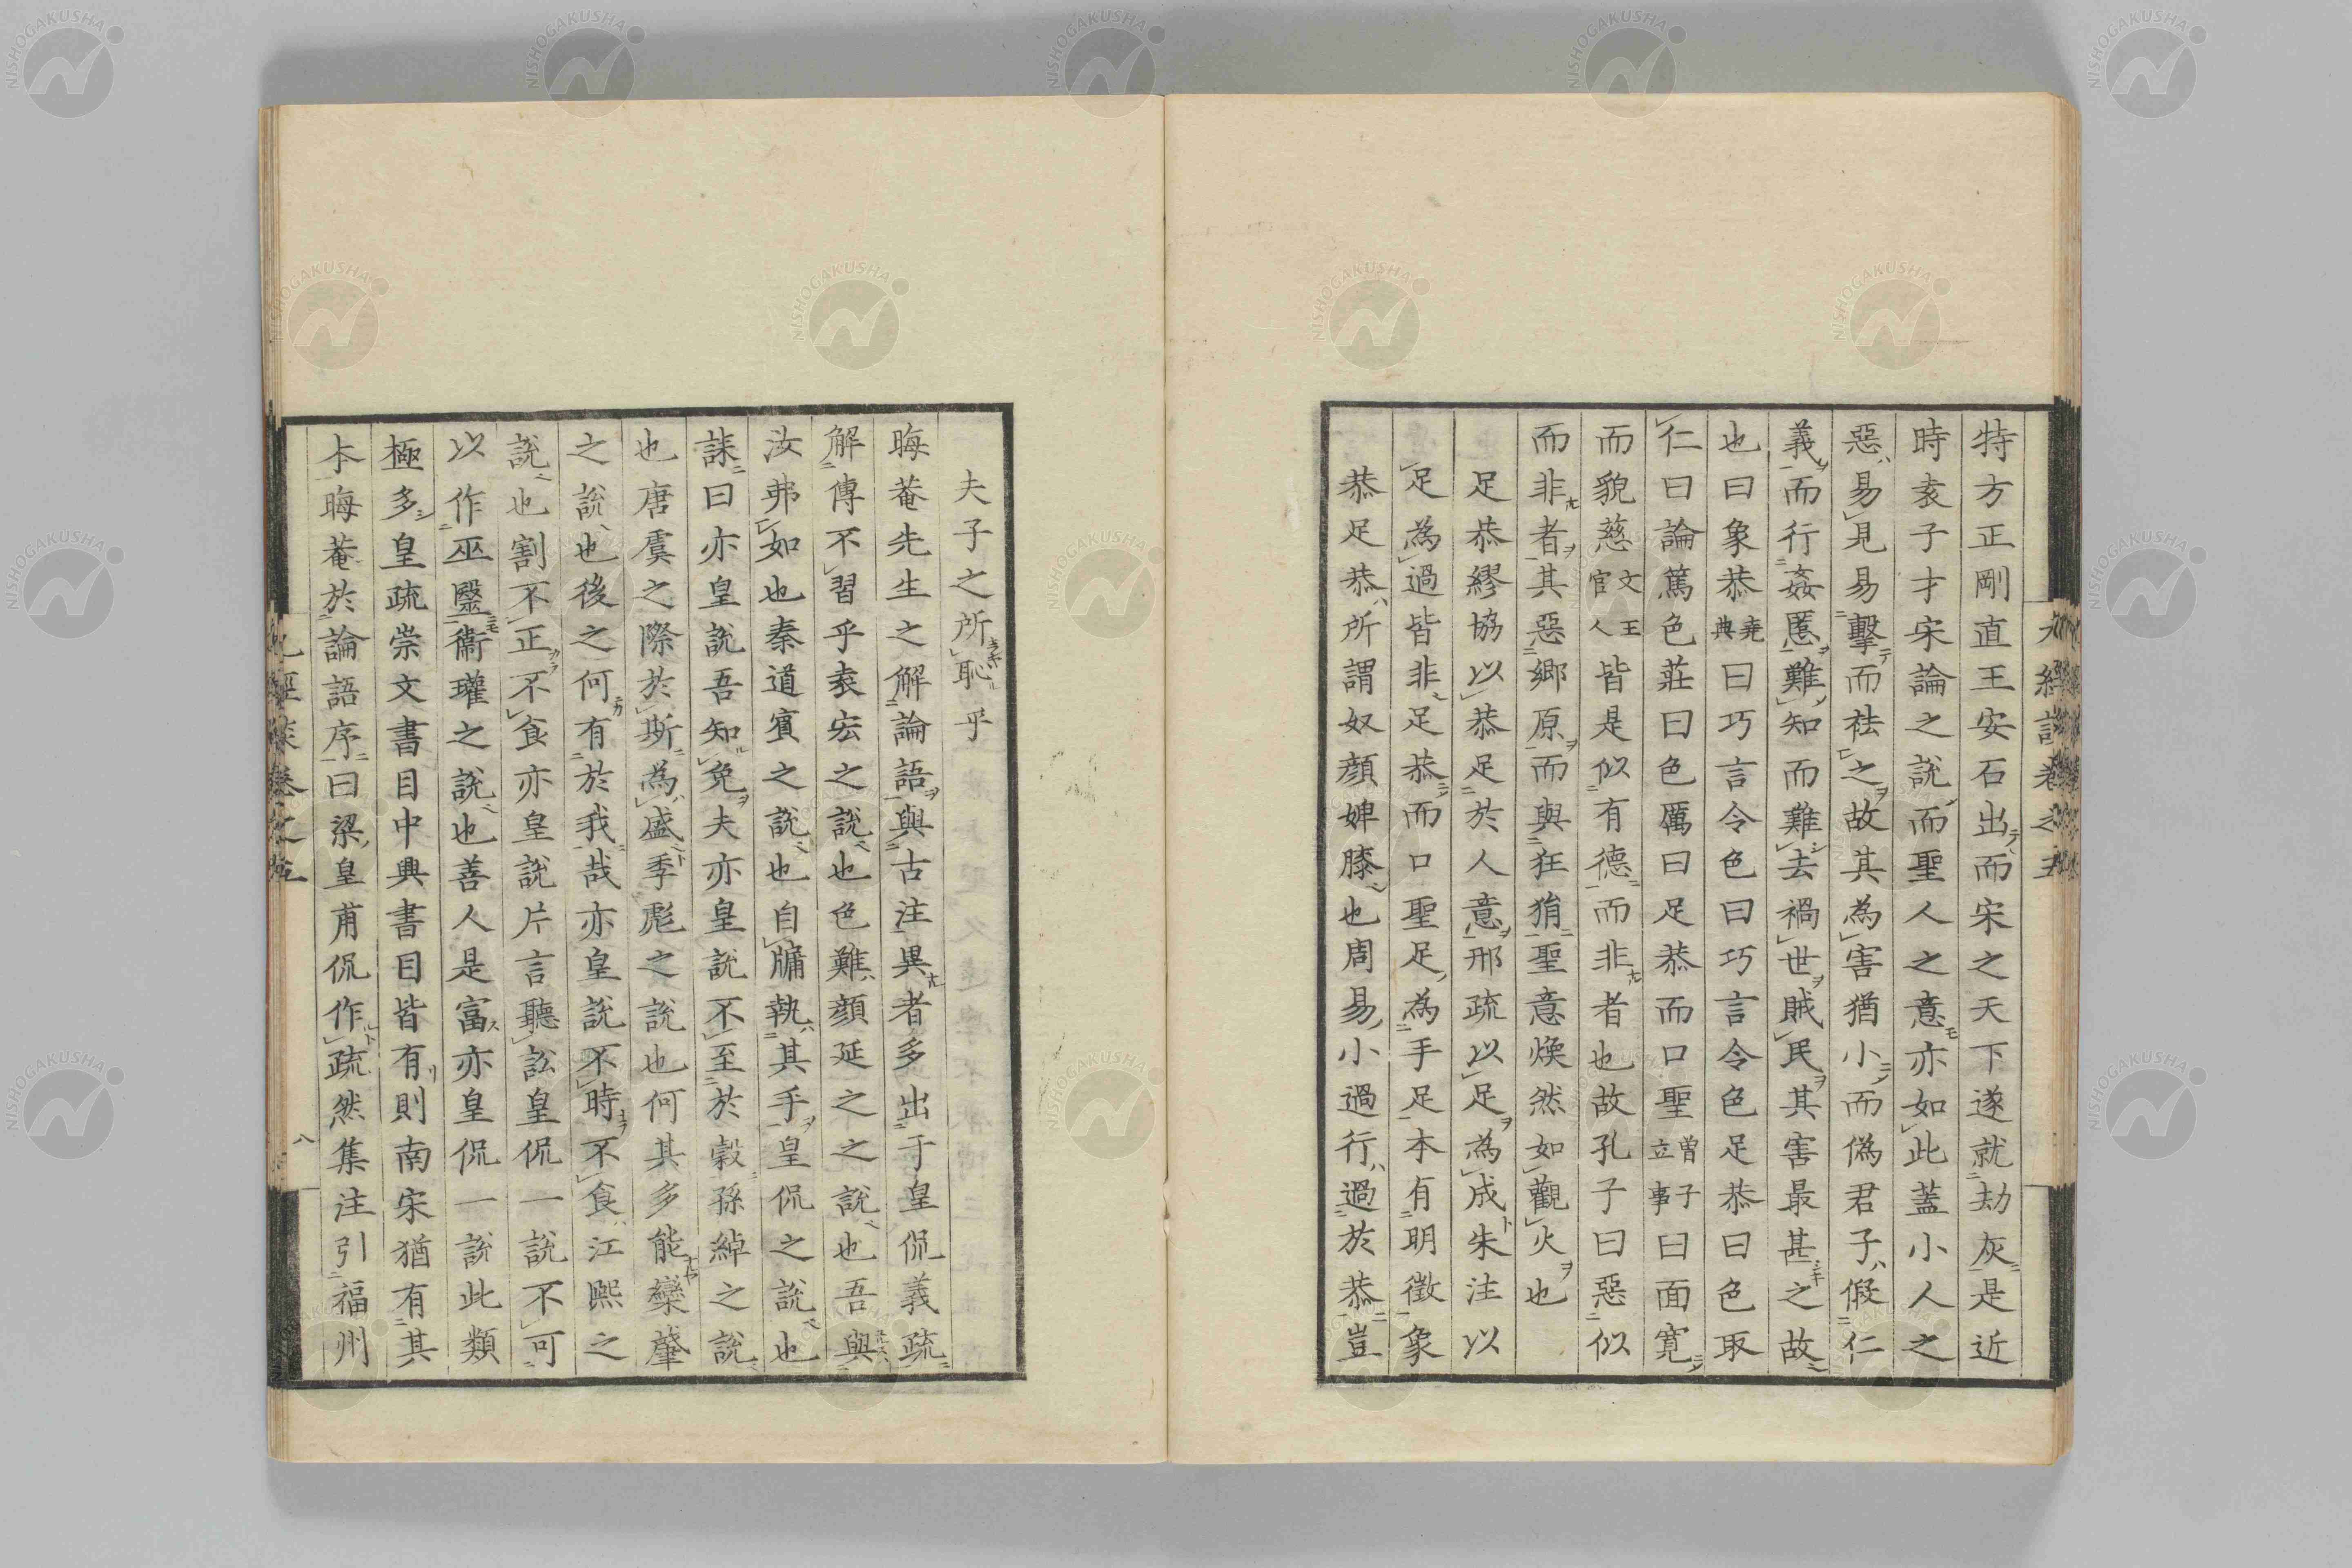 特方正剛直王安石出而宋之天下遂就劫灰是近
時袁子才宋論之說而聖人之意亦如此蓋小人之
惡易見易擊而祛之故其為害猶小而偽君子假仁
義而行姦慝難知而難去禍世賊民其害最甚之故
也曰象恭堯典曰巧言令色曰巧言令色足恭曰色取
仁曰論篤色莊曰色厲曰足恭而口聖曾子立事曰面寬
而貌慈文王官人皆是似有德而非者也故孔子曰惡似
而非者其惡鄉原而與狂狷聖意煥然如觀火也
足恭繆協以恭足於人意邢疏以足為成朱注以
足為過皆非足恭而口聖足為手足本有明徵象
恭足恭所謂奴顏婢膝也周易小過行過於恭豈
夫子之所恥乎
晦菴先生之解論語與古注異者多出于皇侃義疏
解傳不習乎袁宏之說也色難顏延之之說也吾與
汝弗如也秦道賓之說也自牖執其手皇侃之說也
誄曰亦皇說吾知免夫亦皇說不至於穀孫綽之說
也唐虞之際於斯為盛季彪之說也何其多能欒肇
之說也後之何有於我哉亦皇說不時不食江熙之
說也割不正不食亦皇說片言聽訟皇侃一說不可
以作巫毉衞瓘之說也善人是富亦皇侃一說此類
極多皇疏崇文書目中興書目皆有則南宋猶有其
本晦菴於論語序曰梁皇甫侃作疏然集注引福州
八
NISHOGAKUSHA